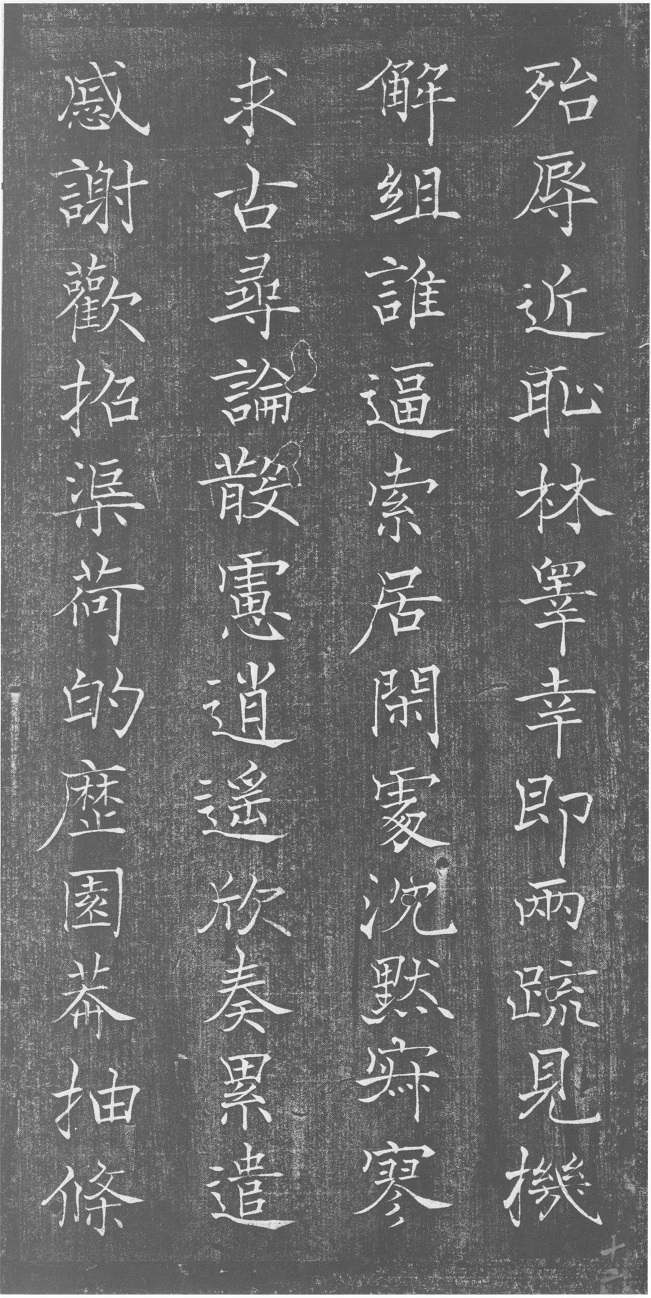 殆辱近恥林睪幸即兩疏見機
解組誰逼索居閑處沈默寂寥
求古尋論散慮逍遙欣奏累遣
慼謝歡招渠荷的歷園莽抽條
十二